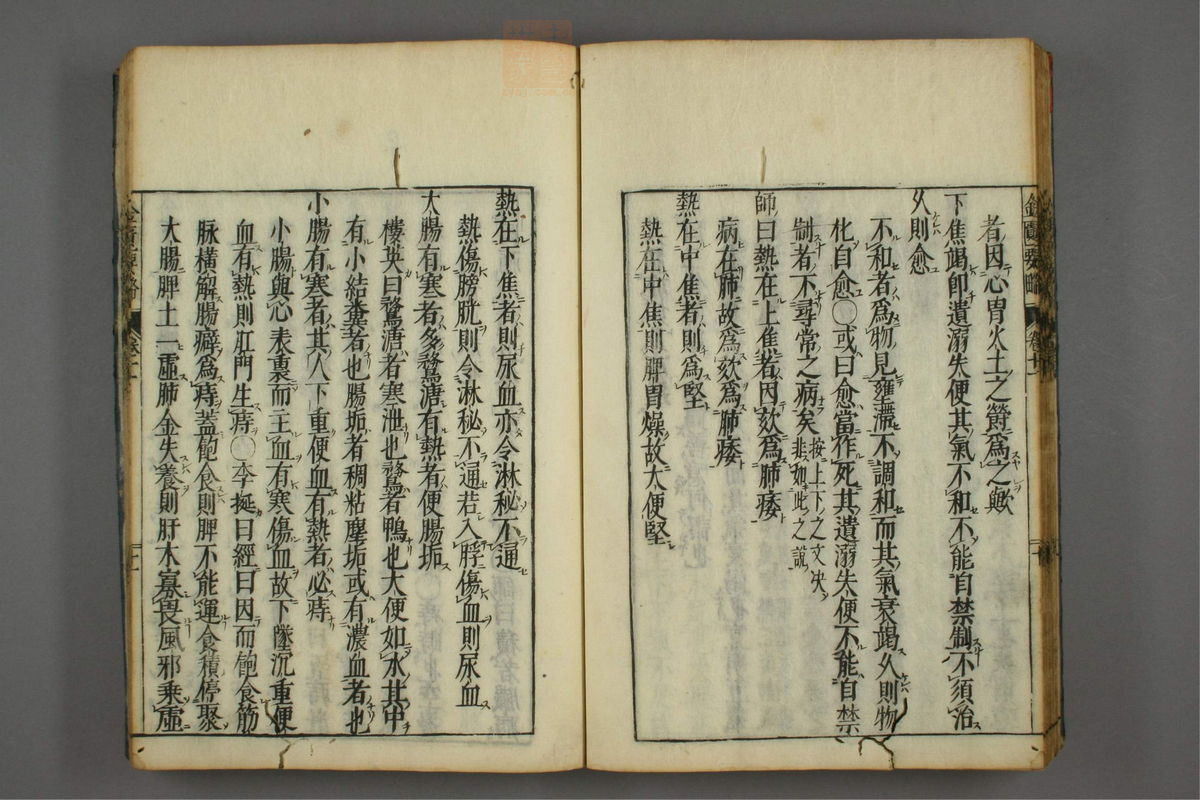 金匱要略 卷十一
者因心胃火土之欝爲之歟
下焦竭卽遺溺失便其氣不和不能自禁制不須治
久則愈
不和者爲物見壅濃不調和而其氣衰竭久則物
化自愈〇或曰愈當作死其遺溺失便不能自禁
制者不尋常之病矣按上下之文決
非如此之說
師曰熱在上焦者因欬爲肺痿
病在肺故爲欬爲肺痿
熱在中焦者則爲堅
熱在中焦則脾胃燥故大便堅
熱在下焦者則尿血亦令淋秘不通
熱傷膀胱則令淋秘不通若入脬傷血則尿血
大腸有寒者多鶩溏有熱者便腸垢
樓英曰鶩溏者寒泄也鶩者鴨也大便如水其中
有小結糞者也腸垢者稠粘塵垢或有濃血者也
小腸有寒者其人下重便血有熱者必痔
小腸與心表裏而主血有寒傷血故下墜沉重便
血有熱則肛門生痔〇李挺曰經曰因而飽食筋
脉橫解腸癖爲痔蓋飽食則脾不能運食積停聚
大腸脾土一虛肺金失養則肝木寡畏風邪乘虛
金匱要略